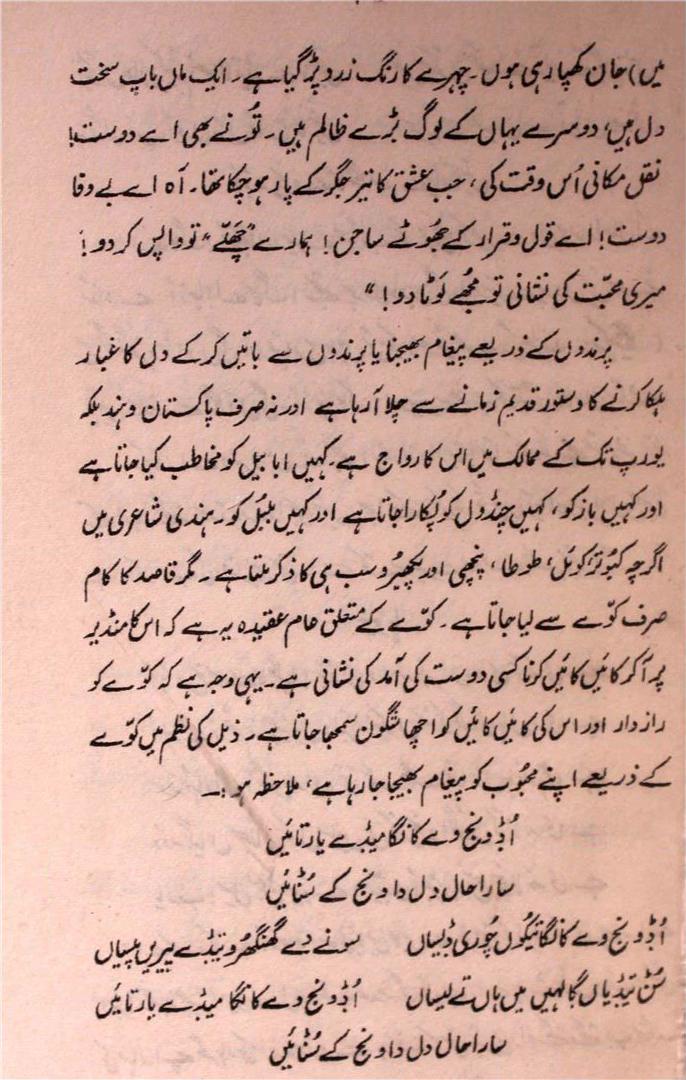 میں) جان کھپا رہی ہوں۔ چہرے کا رنگ زرد پڑ گیا ہے۔ ایک ماں باپ سخت
دل ہیں، دوسرے یہاں کے لوگ بڑے ظالم ہیں۔ تُو نے بھی اے دوست!
نقل مکانی اُس وقت کی، جب عشق کا تیر جگر کے پار ہو چکا تھا۔ آہ اے بے وفا
دوست! اے قول و قرار کے جھوٹے ساجن! ہمارے "چھلّے" تو واپس کر دو!
میری محبّت کی نشانی تو مجھے لَوٹا دو!"
پرندوں کے ذریعے پیغام بھیجنا یا پرندوں سے باتیں کر کے دل کا غبار
ہلکا کرنے کا دستور قدیم زمانے سے چلا آ رہا ہے اور نہ صرف پاکستان و ہند بلکہ
یورپ تک کے ممالک میں اس کا رواج ہے۔ کہیں ابابیل کو مخاطب کیا جاتا ہے
اور کہیں باز کو، کہیں چنڈول کو پُکارا جاتا ہے اور کہیں بلبُل کو۔ ہندی شاعری میں
اگرچہ کبوتر، کوئل، طوطا، پنچھی اور پکھیرو سب ہی کا ذکر ملتا ہے۔ مگر قاصد کا کام
صرف کوّے سے لیا جاتا ہے۔ کوّے کے متعلق عام عقیدہ یہ ہے کہ اس کا منڈیر
پر آ کر کائیں کائیں کرنا کسی دوست کی آمد کی نشانی ہے۔ یہی وجہ ہے کہ کوّے کو
راز دار اور اس کی کائیں کائیں کو اچھا شگون سمجھا جاتا ہے۔ ذیل کی نظم میں کوّے
کے ذریعے اپنے محبُوب کو پیغام بھیجا جا رہا ہے، ملاحظہ ہو :۔
اُڈ ونج وے کانگا میڈے یار تائیں
سارا حال دل دا ونج کے سُنائیں
اُڈ ونج وے کانگا تیکوں چُوری ڈیساں سونے دے گھنگھرو تیڈے پیریں پیساں
سُن تیڈیاں گالہیں میں ہاں تے لیساں اُڈ ونج وے کانگا میڈے یار تائیں
سارا حال دل دا ونج کے سُنائیں